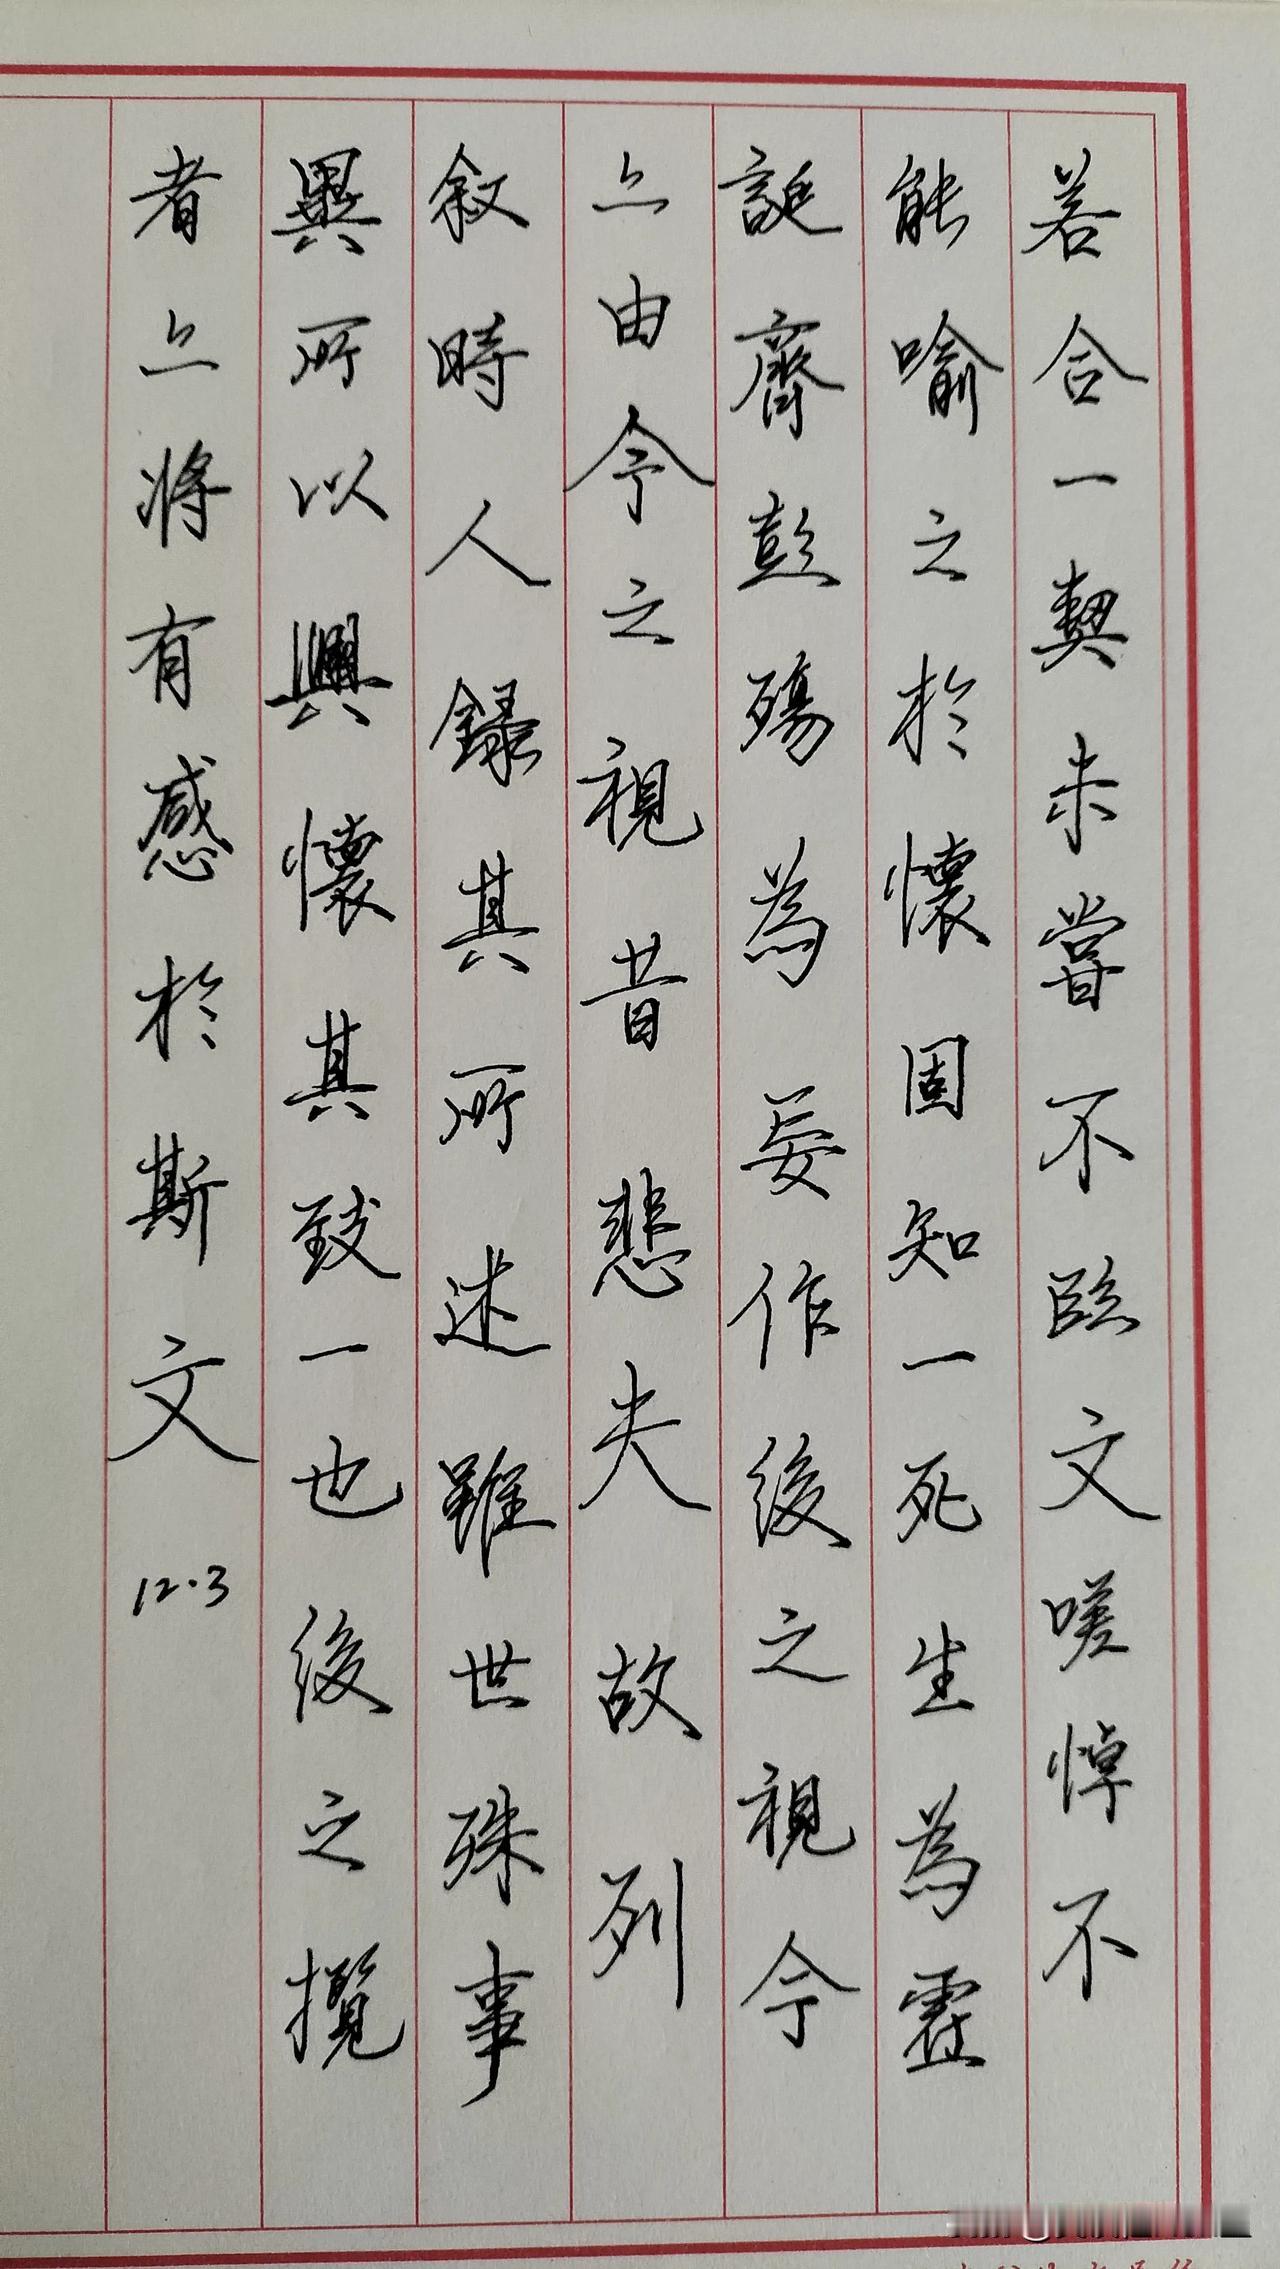 若合一契未嘗不臨文嗟悼不
能喻之於懷固知一死生為虛
誕齊彭殤為妄作後之視今
亦由今之視昔悲夫故列
叙時人錄其所述雖世殊事
異所以興懷其致一也後之攬
者亦將有感於斯文
12.3